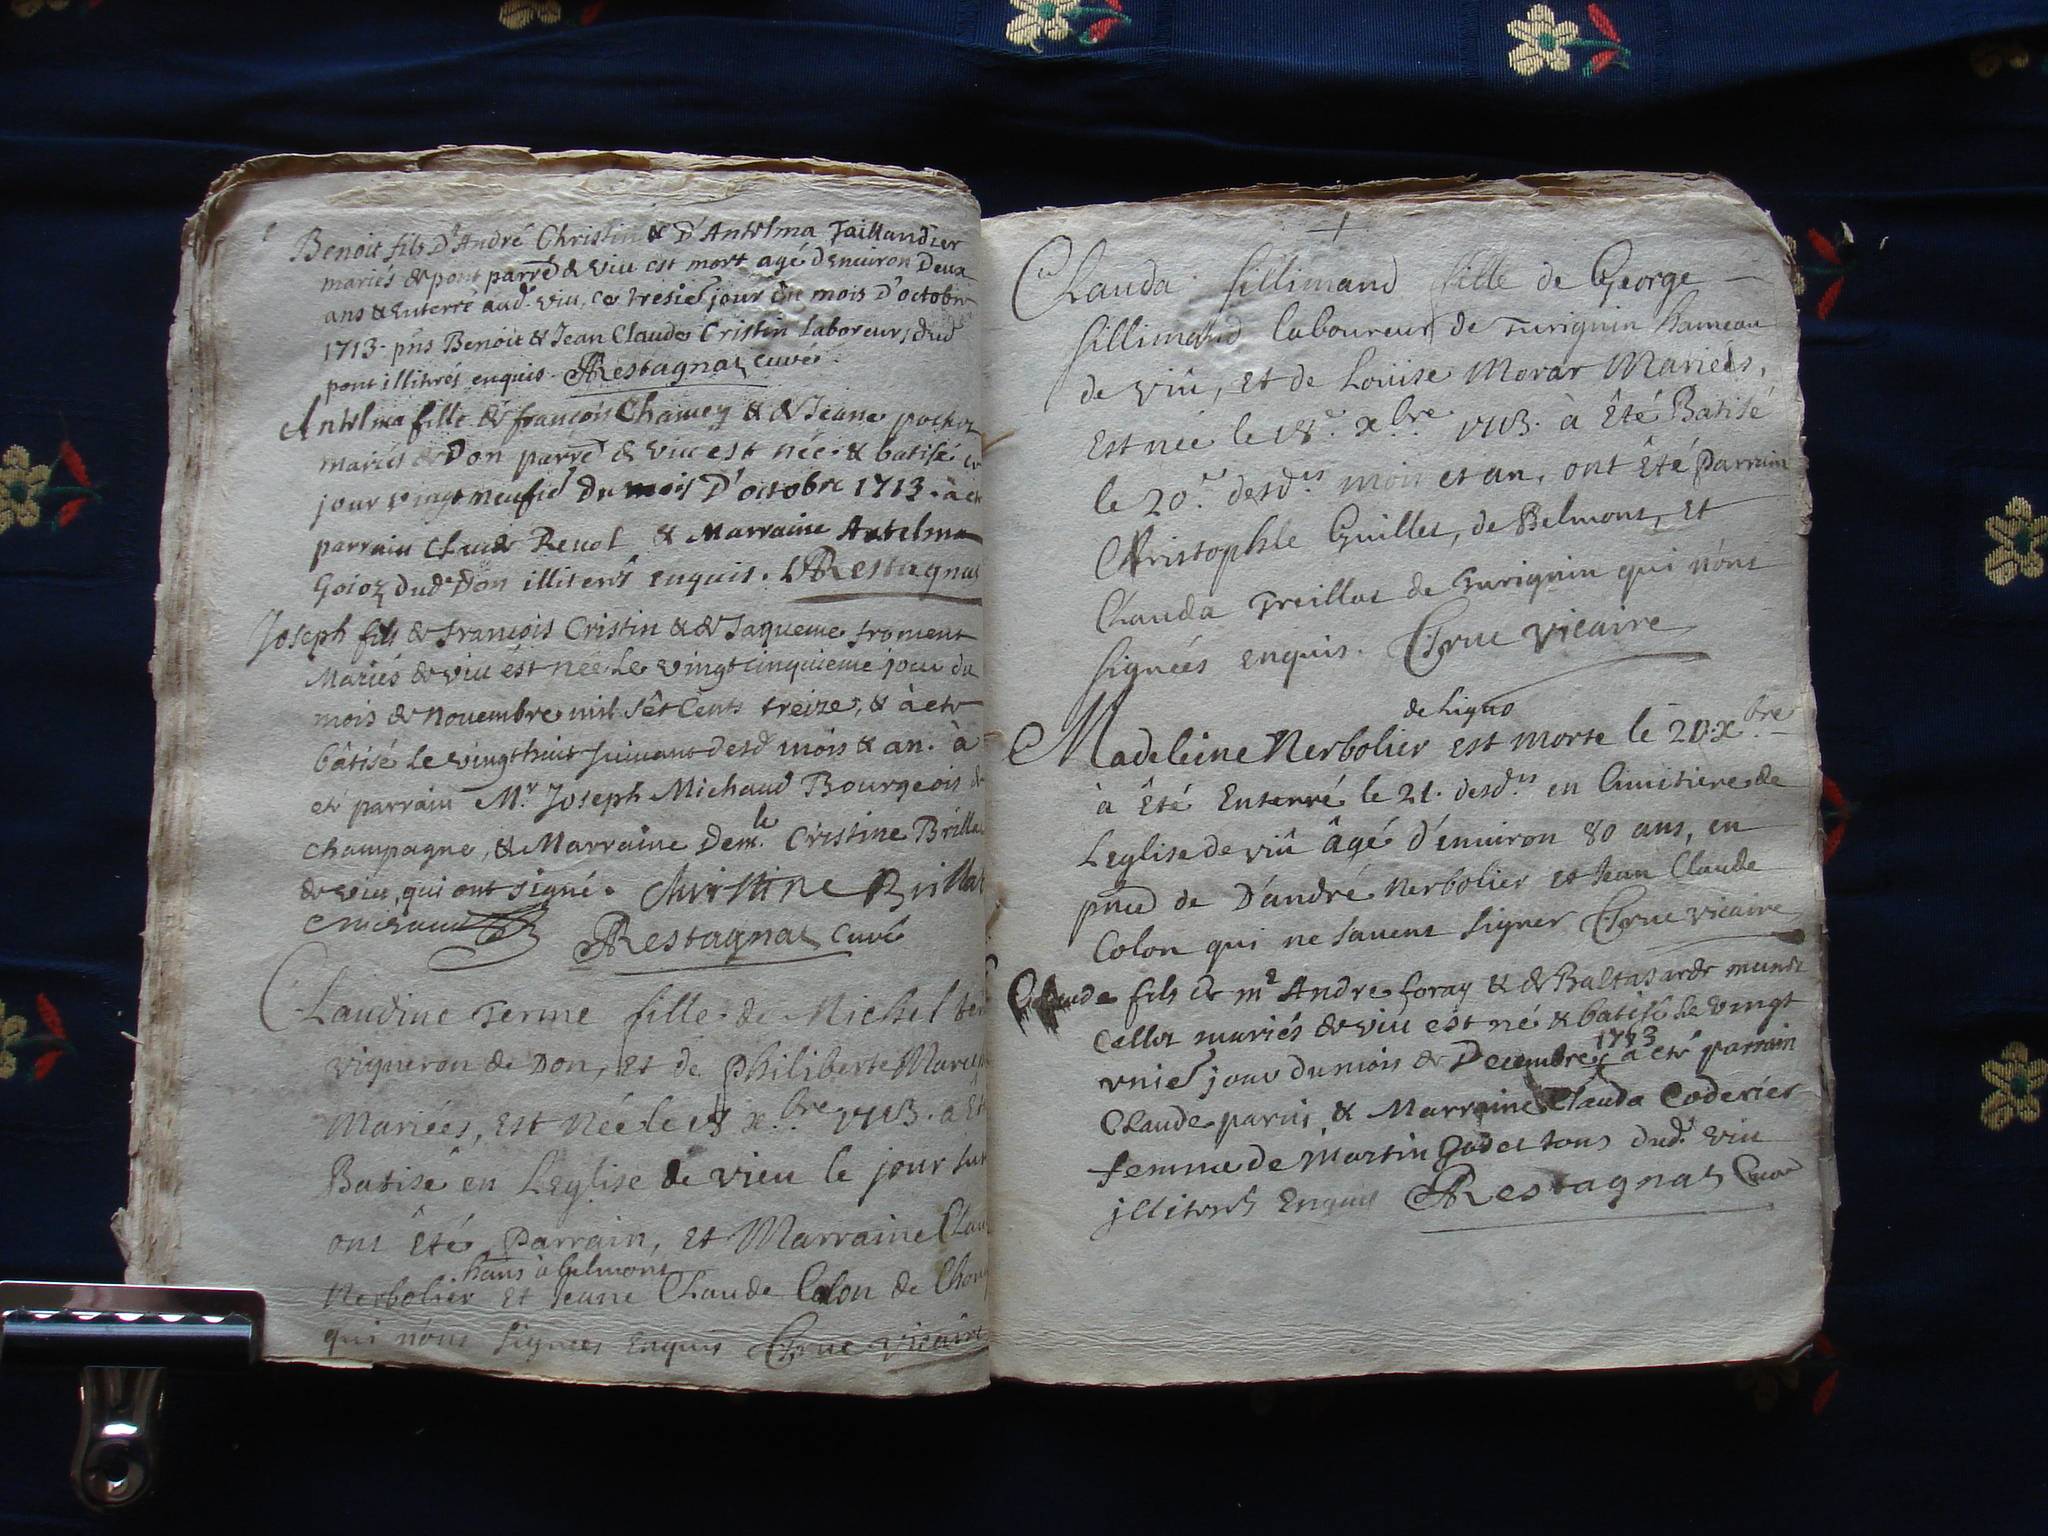 Benoit fils D'André Christin & D'Antelma Taillandier
mariés de pont parr.e de viu est mort agé d'enuiron Deux
ans & Enterré aud. viu, ce tresie jour du mois D'octobre
1713. pns Benoit & Jean Claude Cristin Laboreurs dud
pont illitrés enquis. Restagnat curé
Antelma fille de françois Chamey & de Jeane pochoz
mariés de Don parre de viu est née & batisé ce
jour vingt neufie Du mois D'octobre 1713. à été
parrain Claude Reuol & Marraine Antelma
Gojoz dud. Don illiterés enquis. Restagnat
Joseph fils de françois Cristin & de Jaqueme froment
Mariés de viu ést née Le vingt cinquieme jour du
mois de nouembre mil sêt Cents treize, & à été
bâtisé Le vingt huit suiuant desd mois & an. à
été parrain M.r Joseph Michaud Bourgeois de
champagne, & Marraine Dem.le Cristine Brillat
de viu, qui ont signé. Christine Brillat
Michaud
Restagnat curé
Claudine Terme fille de Michel ter
vigneron de Don, et de Philiberte
Mariées, Est Née le 18 x.bre 1713. a Eté
Batisé en L'eglise de vieu le jour
ont êté Parrain, et Marraine
hans a belmont
Nerbolier et Jeane Claude Colon de
qui n'ont signees enquis Brue vicaire
Clauda sillimand fille de George
sillimand laboureur de Turignin hameau
de viû, et de Louise Morar Mariées,
Est née le 18.e x.bre 1713. à Êté Batisé
le 20.e desd.ts mois et an, ont Êté Parrain
Christophle Guillet, de Belmont, et
Clauda Treillat de Turignin qui n'ont
signées enquis. Brue vicaire
de Ligno
Madeleine Nerbolier est morte le 20. x.bre
à Êté Enterré le 21. desd.ts en Cimitiere de
L'eglise de viû âgé d'enuiron 80 ans, en
pnce de D'andré Nerbolier et Jean Claude
Colon qui ne sauent signer Brue vicaire
Claude fils de m.e Andre foray & de Baltasarde
Cellot mariés de viu est né & batisé Le vingt
1713
vnie jour du mois de Decembre, a eté parrain
Claude paruis & Marraine Clauda Coderier
femme de Martin Godet tous dud. viu
jlliterés Enquis Restagnat Curé